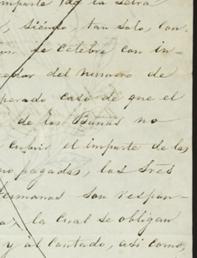 importe de la letra
, siendo, tan solo, con-
un se celebre con in-
del numero de
perado caso de que el
de los Baños no
cubrir el importe de las
no pagados, las tres
ermanas son respon-
la cual se obligan
y al contado, así como,